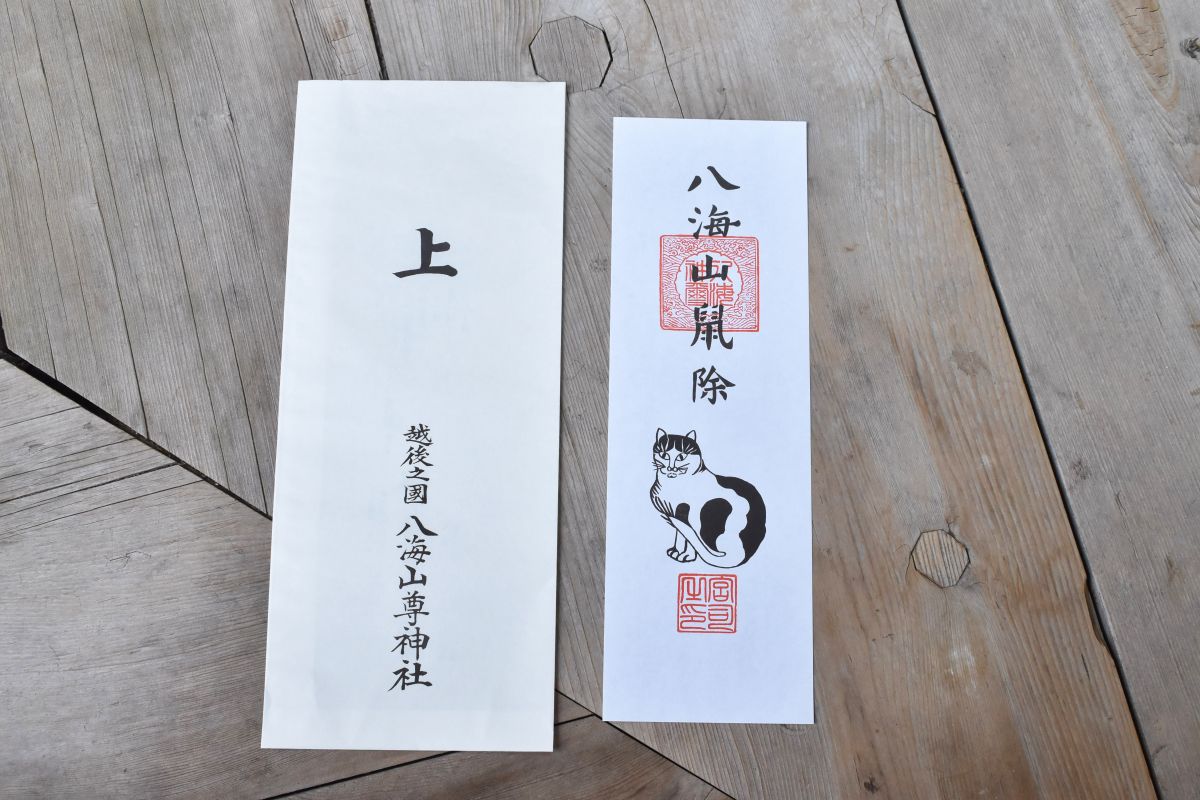 上
越後之國
八海山尊神社
八海山鼠除
宮司之印